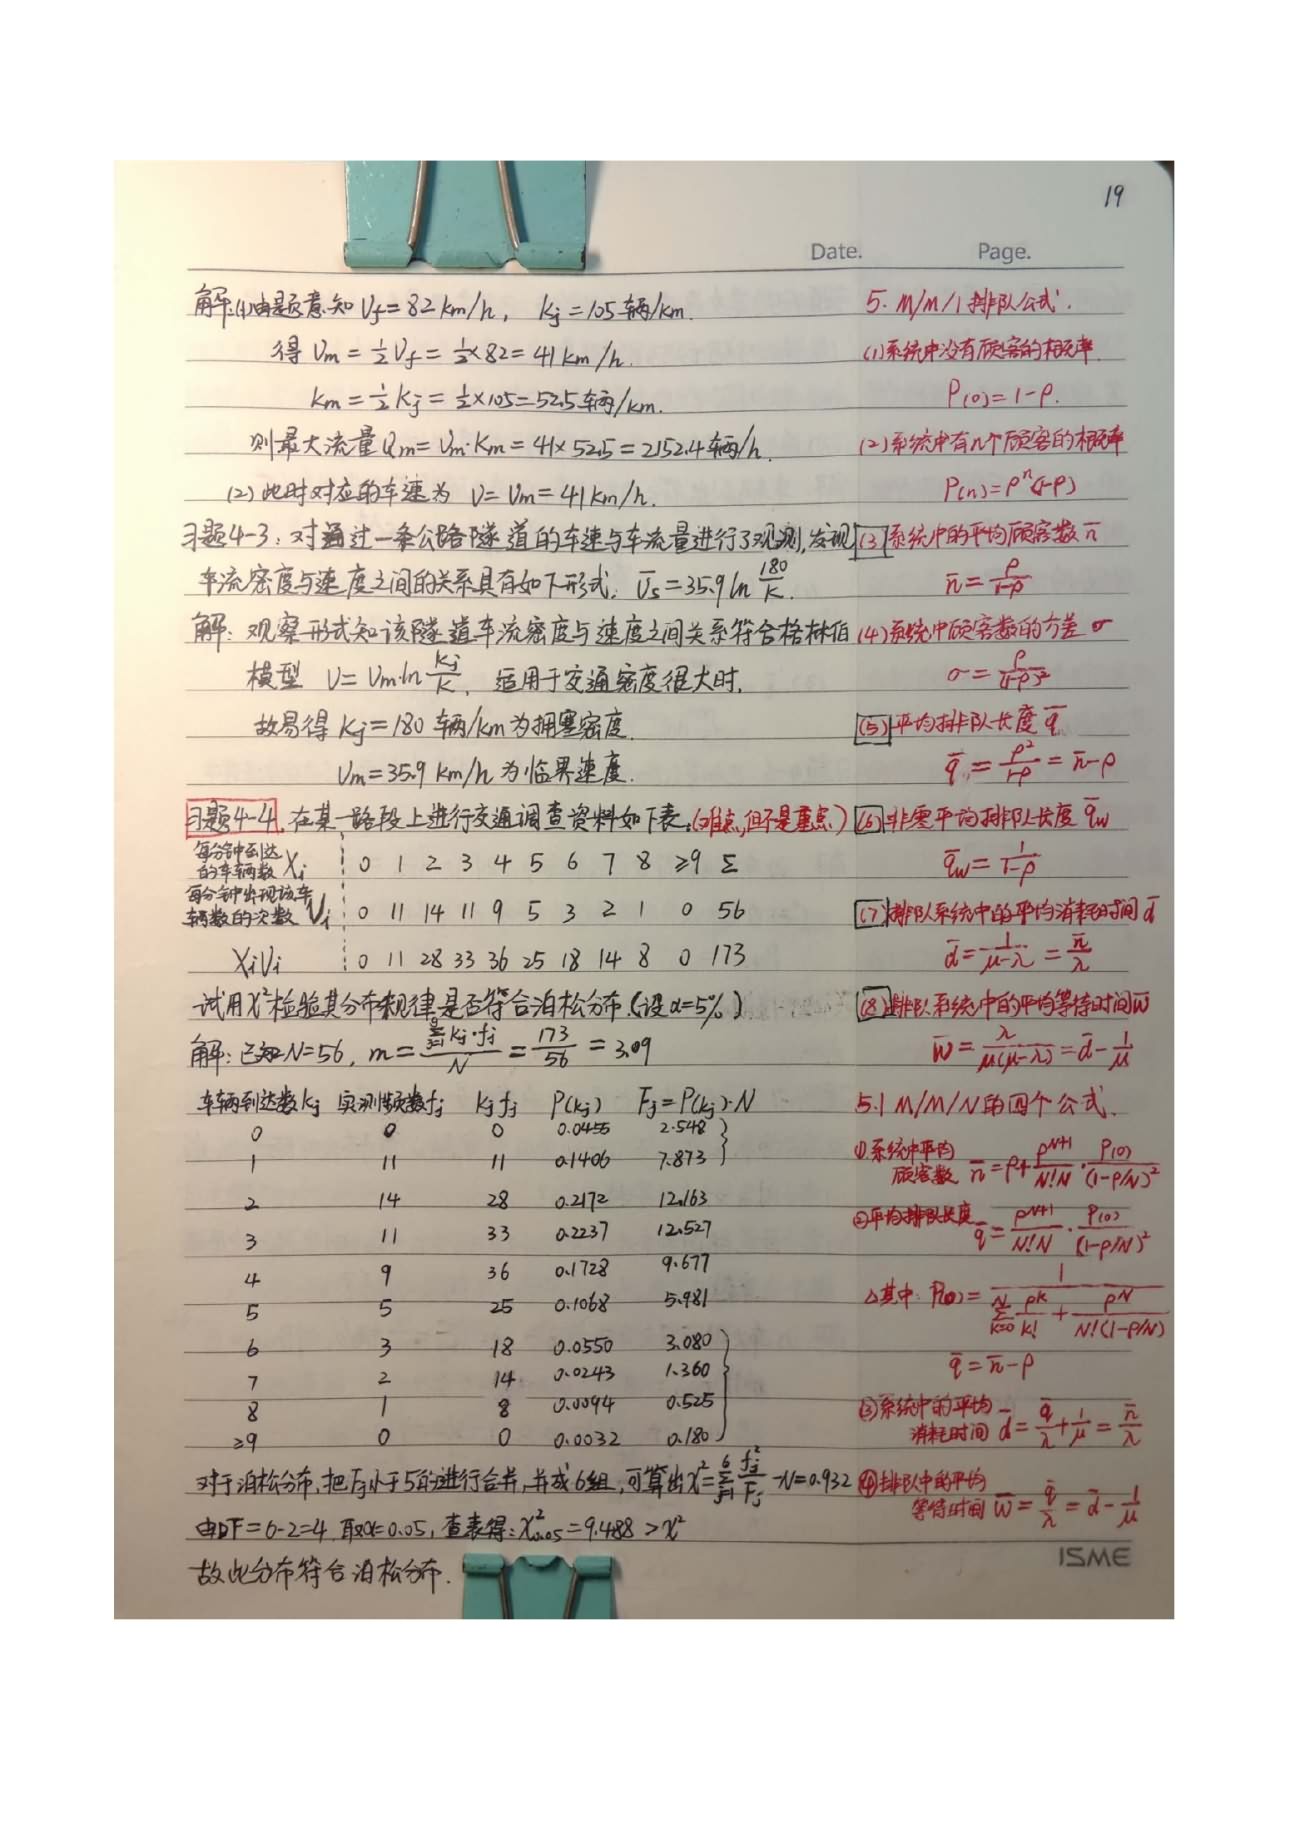 19
Date. Page.
解:(1)由题意知 Vf=82km/h, kj=105辆/km.
得 Vm=½Vf=½×82=41km/h.
Km=½Kj=½×105=52.5辆/km.
则最大流量Qm=Vm·Km=41×52.5=2152.4辆/h.
(2)此时对应的车速为 V=Vm=41km/h.
习题4-3:对通过一条公路隧道的车速与车流量进行了观测,发现
车流密度与速度之间的关系具有如下形式: V̄s=35.9ln 180/K.
解:观察形式知该隧道车流密度与速度之间关系符合格林伯
模型 V=Vm·ln Kj/K, 适用于交通密度很大时.
故易得 Kj=180 辆/km为拥塞密度.
Vm=35.9 km/h 为临界速度.
习题4-4. 在某一路段上进行交通调查资料如下表:(难点,但不是重点)
每分钟到达的车辆数 Xi 0 1 2 3 4 5 6 7 8 ≥9 Σ
每分钟出现该车辆数的次数 Vi 0 11 14 11 9 5 3 2 1 0 56
XiVi 0 11 28 33 36 25 18 14 8 0 173
试用X²检验其分布规律是否符合泊松分布.(设α=5%)
解:已知N=56, m=Σkj·fj/N=173/56=3.09
车辆到达数kj 实测频数fj kjfj P(kj) Fj=P(kj)·N
0 0 0 0.0455 2.548
1 11 11 0.1406 7.873
2 14 28 0.2172 12.163
3 11 33 0.2237 12.527
4 9 36 0.1728 9.677
5 5 25 0.1068 5.981
6 3 18 0.0550 3.080
7 2 14 0.0243 1.360
8 1 8 0.0094 0.525
≥9 0 0 0.0032 0.180
对于泊松分布,把Fj小于5的进行合并,并成6组,可算出X²=Σ(j=1→6) fj²/Fj -N=0.932
由DF=6-2=4, 取α=0.05, 查表得:X²0.05=9.488>X²
故此分布符合泊松分布.
5. M/M/1排队公式.
(1)系统中没有顾客的概率.
P(0)=1-ρ.
(2)系统中有n个顾客的概率
P(n)=ρⁿ(1-ρ)
(3)系统中的平均顾客数 n̄
n̄=ρ/(1-ρ)
(4)系统中顾客数的方差 σ
σ=ρ/(1-ρ)²
(5)平均排队长度 q̄
q̄=ρ²/(1-ρ)=n̄-ρ
(6)非零平均排队长度 q̄w
q̄w=1/(1-ρ)
(7)排队系统中的平均消耗时间 d̄
d̄=1/(μ-λ)=n̄/λ
(8)排队系统中的平均等待时间 w̄
w̄=λ/μ(μ-λ)=d̄-1/μ
5.1 M/M/N的四个公式.
①系统中平均顾客数 n̄=ρ+ρᴺ⁺¹/N!N·P(0)/(1-ρ/N)²
②平均排队长度 q̄=ρᴺ⁺¹/N!N·P(0)/(1-ρ/N)²
△其中:P(0)=1/(Σ(k=0→N) ρᵏ/k!+ρᴺ/N!(1-ρ/N))
q̄=n̄-ρ
③系统中的平均消耗时间 d̄=q̄/λ+1/μ=n̄/λ
④排队中的平均等待时间 w̄=q̄/λ=d̄-1/μ
ISME